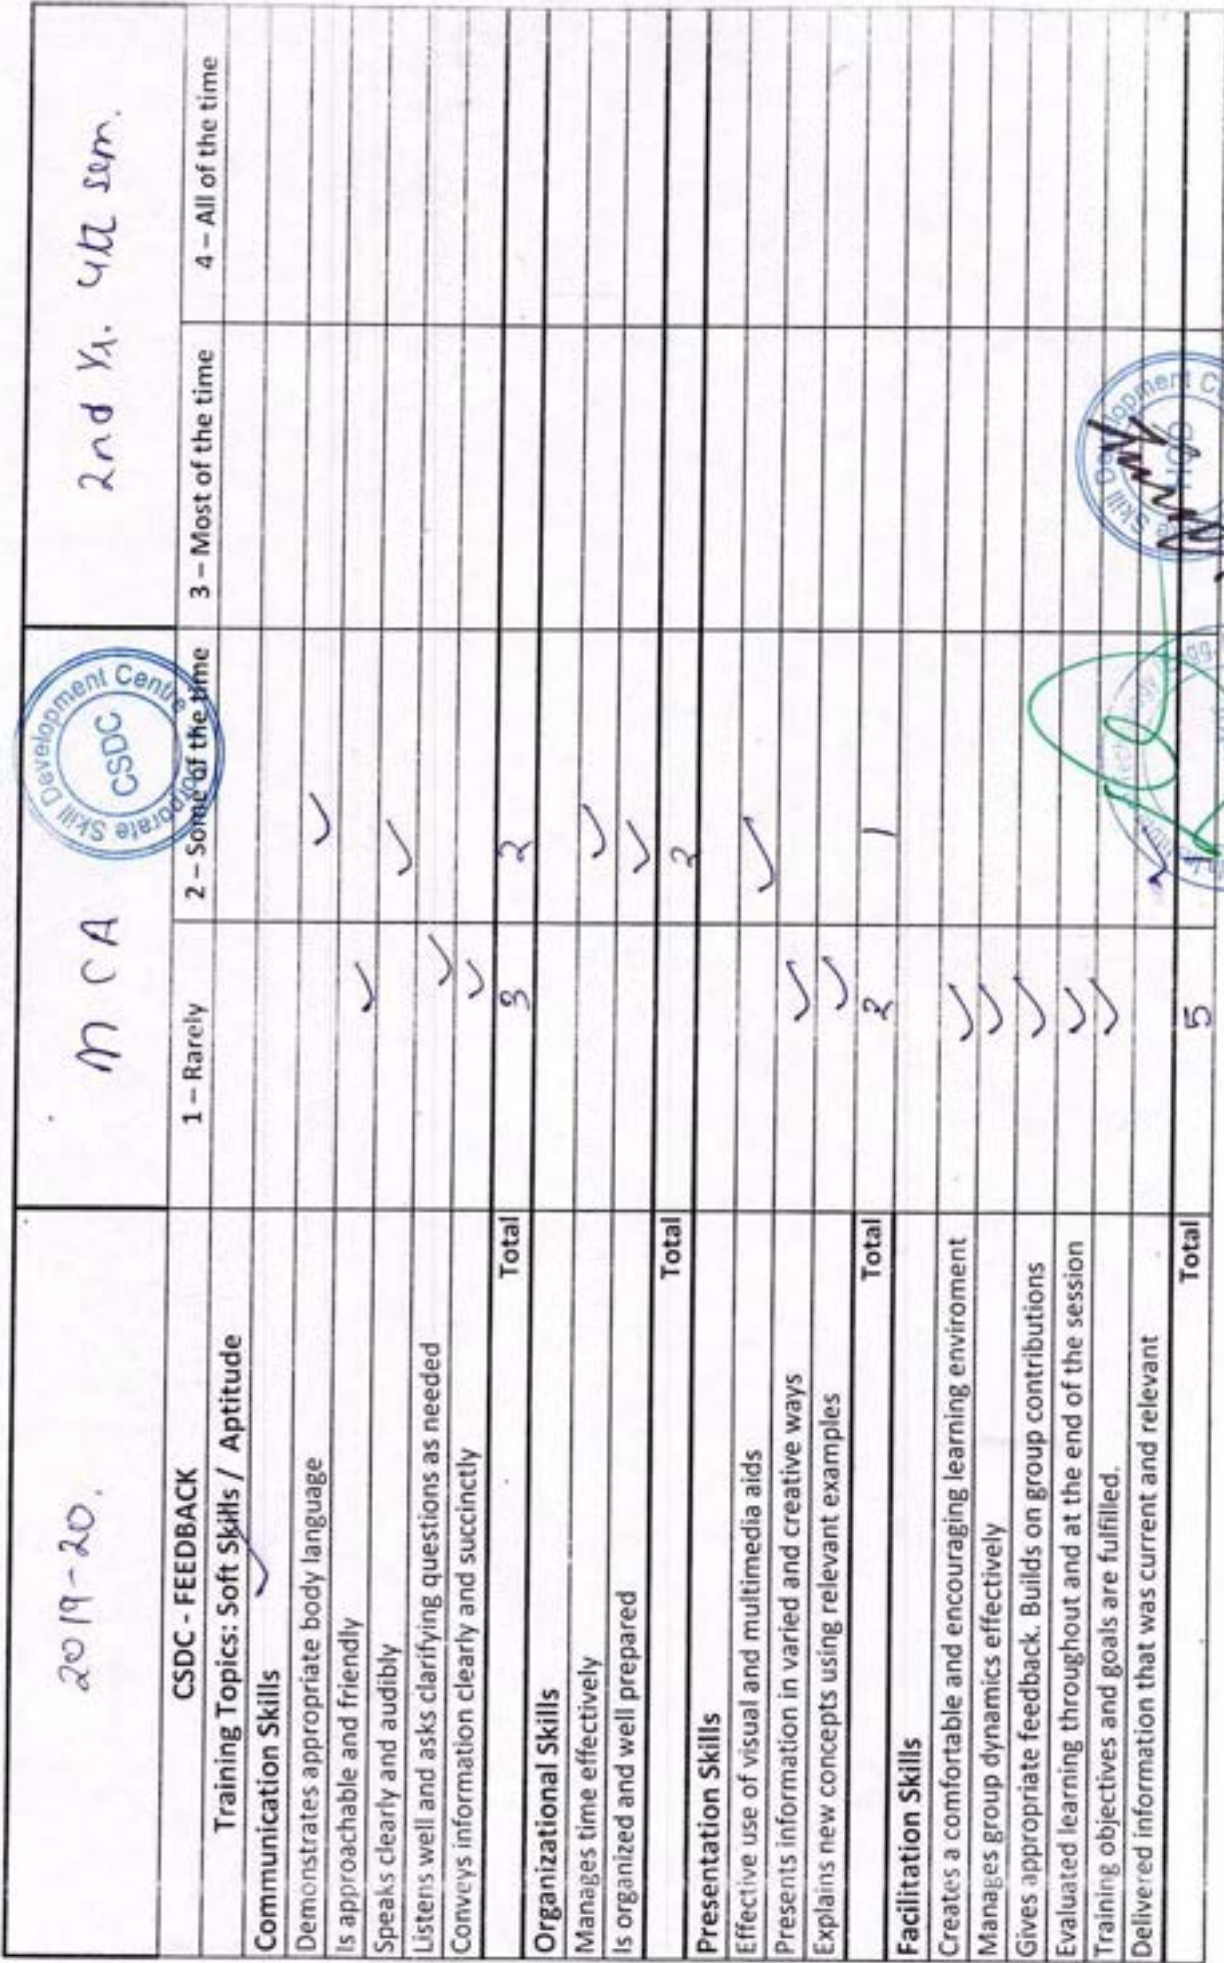 2019-20.
M C A
2nd Yr. 4th sem.
Corporate Skill Development Centre
CSDC
CSDC - FEEDBACK 1 – Rarely 2 – Some of the time 3 – Most of the time 4 – All of the time
Training Topics: Soft Skills / Aptitude
Communication Skills
Demonstrates appropriate body language ✓
Is approachable and friendly ✓
Speaks clearly and audibly ✓
Listens well and asks clarifying questions as needed ✓
Conveys information clearly and succinctly ✓
Total 3 2
Organizational Skills
Manages time effectively ✓
Is organized and well prepared ✓
Total 2
Presentation Skills
Effective use of visual and multimedia aids ✓
Presents information in varied and creative ways ✓
Explains new concepts using relevant examples ✓
Total 2 1
Facilitation Skills
Creates a comfortable and encouraging learning environment ✓
Manages group dynamics effectively ✓
Gives appropriate feedback. Builds on group contributions ✓
Evaluated learning throughout and at the end of the session ✓
Training objectives and goals are fulfilled. ✓
Delivered information that was current and relevant ✓
Total 5 1
Skill Development C
HOD